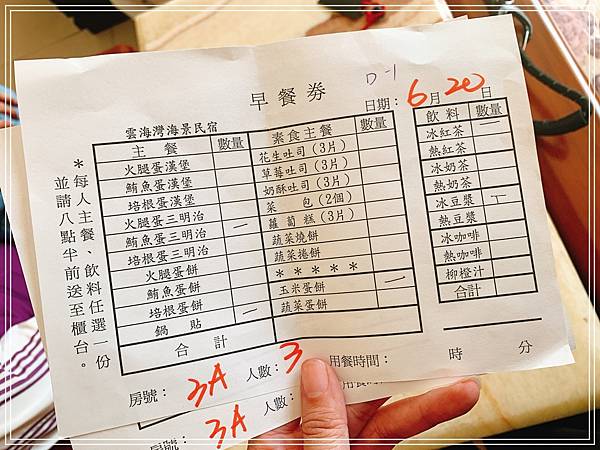 D-1
早餐券
日期：6月20日
雲海灣海景民宿
主餐 數量 素食主餐 數量 飲料
火腿蛋漢堡 花生吐司（3片） 冰紅茶 一
鮪魚蛋漢堡 草莓吐司（3片） 熱紅茶
培根蛋漢堡 奶酥吐司（3片） 冰奶茶
火腿蛋三明治 一 菜包（2個） 熱奶茶
鮪魚蛋三明治 蘿蔔糕（3片） 冰豆漿 丅
培根蛋三明治 蔬菜燒餅 熱豆漿
火腿蛋餅 蔬菜捲餅 冰咖啡
鮪魚蛋餅 ＊＊＊＊＊ 熱咖啡
培根蛋餅 一 玉米蛋餅 一 柳橙汁
鍋貼 蔬菜蛋餅 合計
合計
＊每人主餐、飲料任選一份
並請八點半前送至櫃台。
房號：3A 人數：3 用餐時間： 時 分
房號：3A 人數：